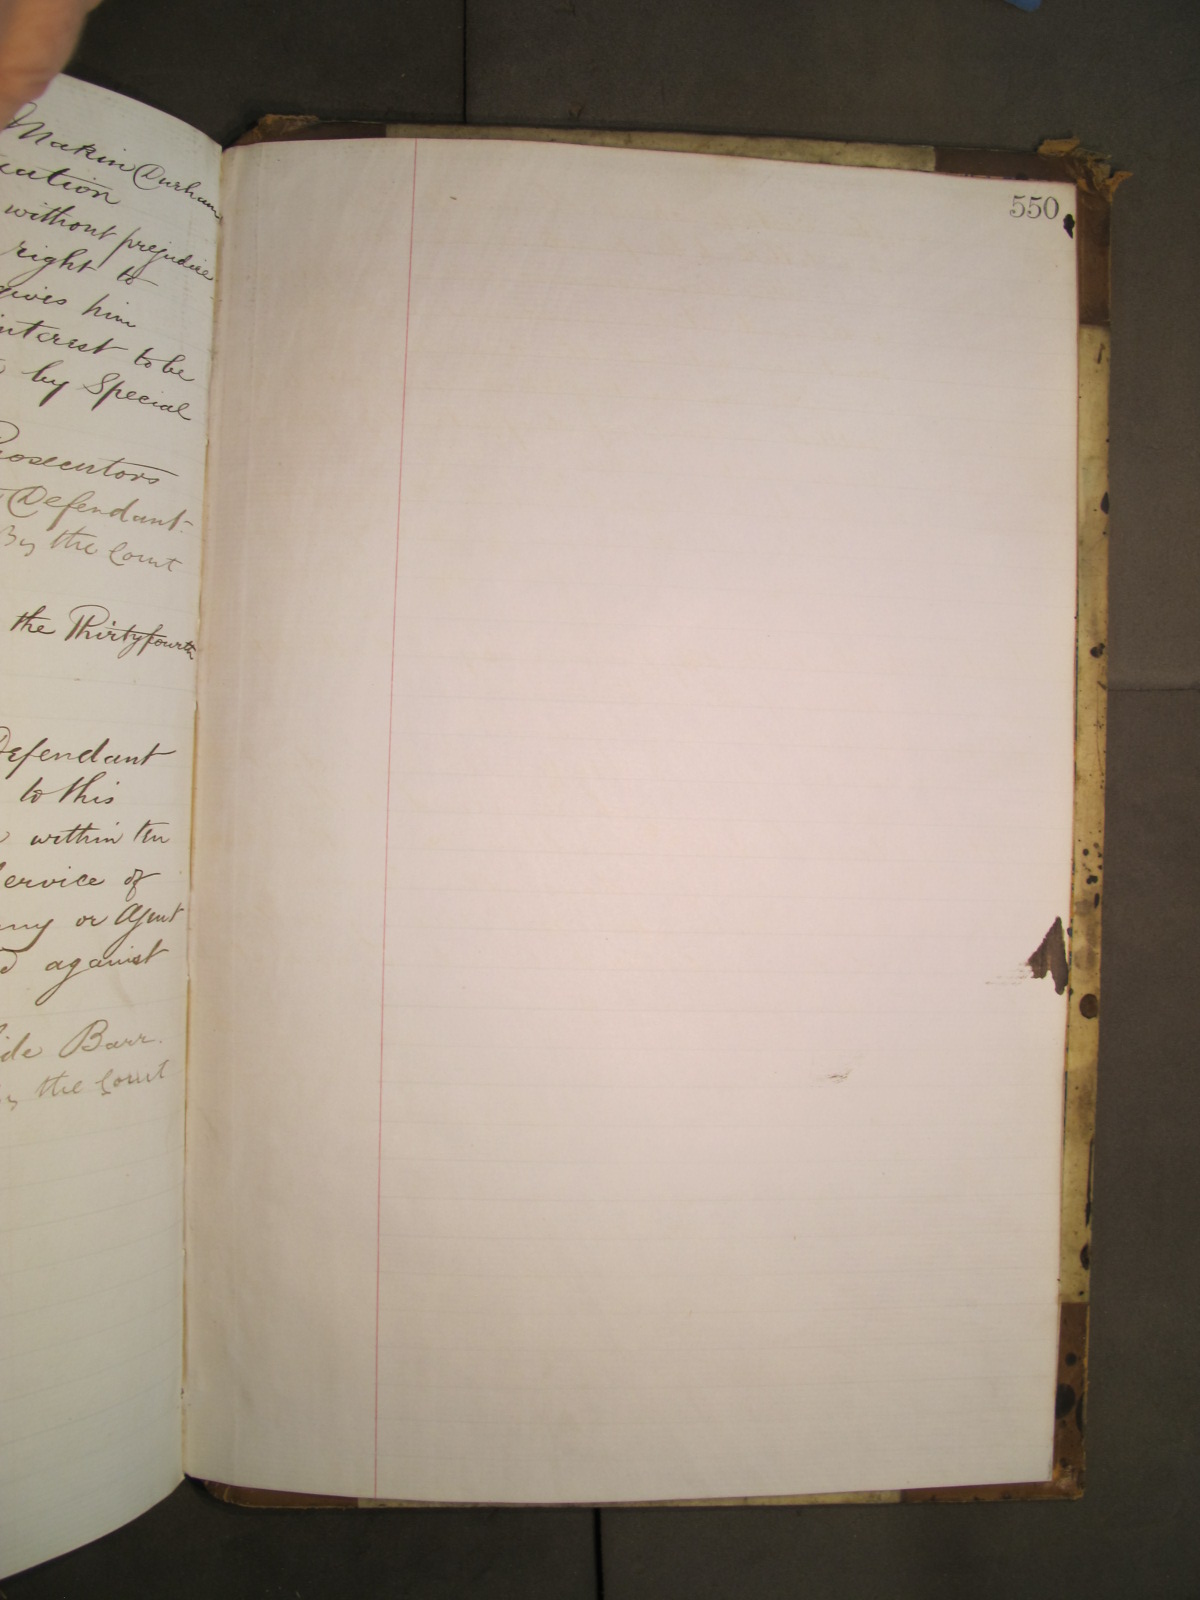 Makin Durham
without prejudice
right to
gives him
interest to be
by Special
Prosecutors
Defendant
By the Court
the Thirtyfourth
Defendant
to this
within ten
service of
or Agent
against
Barr.
the Court
550